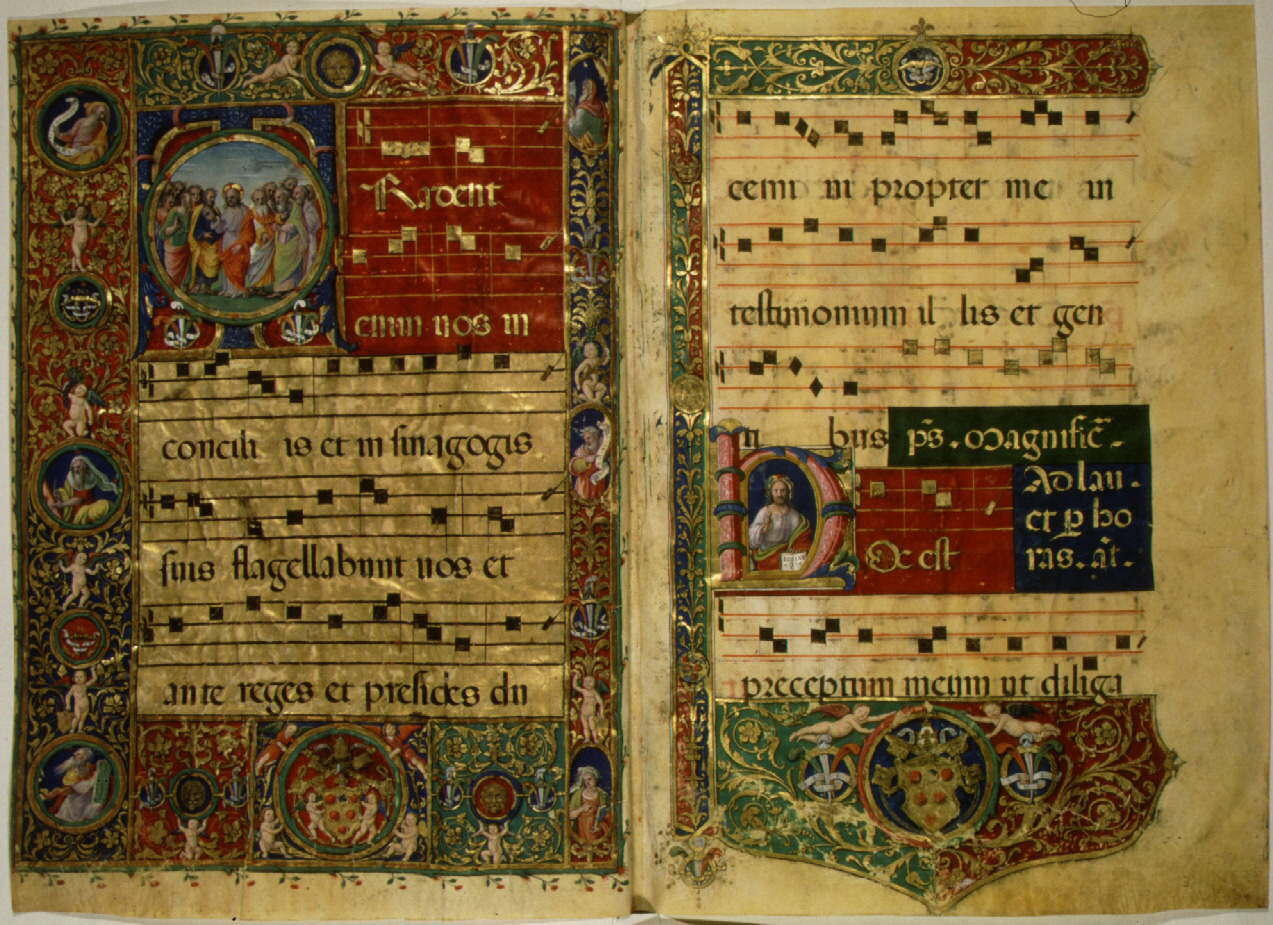 Tradent
enim uos in
concili is et in sinagogis
suis flagellabunt uos et
ante reges et presides du
cemi ni propter me in
testimonium il lis et gen
ti bus ps. Magnific.
Ad lau.
et p ho
ras. at.
Hoc est
preceptum meum ut diliga